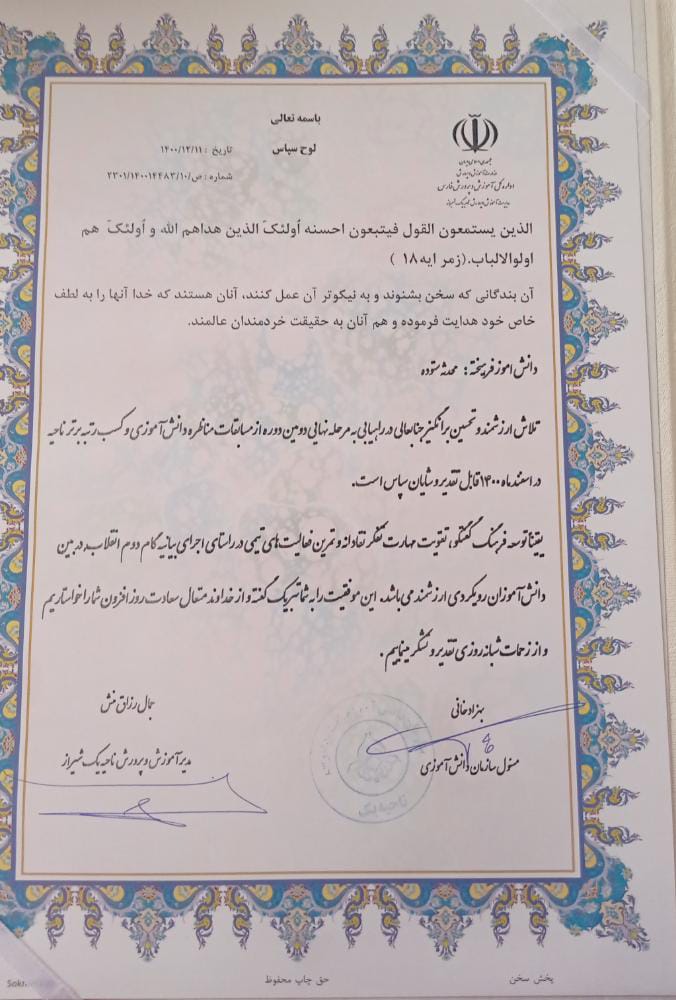 باسمه تعالی
لوح سپاس
تاریخ : ۱۴۰۰/۱۲/۱۱
شماره : ص/۲۳۰۱/۱۴۰۰۱۴۴۸۳/۱۰
جمهوری اسلامی ایران
وزارت آموزش و پرورش
اداره کل آموزش و پرورش فارس
مدیریت آموزش و پرورش ناحیه یک شیراز
الذین یستمعون القول فیتبعون احسنه أولئکَ الذین هداهم الله و أولئکَ هم
اولوالالباب.(زمر ایه۱۸ )
آن بندگانی که سخن بشنوند و به نیکوتر آن عمل کنند، آنان هستند که خدا آنها را به لطف
خاص خود هدایت فرموده و هم آنان به حقیقت خردمندان عالمند.
دانش اموز فرهیخته : محدثه ستوده
تلاش ارزشمند و تحسین برانگیز جنابعالی در راهیابی به مرحله نهایی دومین دوره از مسابقات مناظره دانش‌آموزی و کسب رتبه برتر ناحیه
در اسفندماه ۱۴۰۰ قابل تقدیر و شایان سپاس است.
یقینا توسعه فرهنگ گفتگو، تقویت مهارت تفکر نقادانه و تمرین فعالیت‌های تیمی در راستای اجرای بیانیه گام دوم انقلاب، در بین
دانش‌آموزان رویکردی ارزشمند می باشد. این موفقیت را به شما تبریک گفته و از خداوند متعال سعادت روزافزون شما را خواستاریم
و از زحمات شبانه روزی تقدیر و تشکر مینماییم .
بهزاد خانی
مسئول سازمان دانش‌آموزی
جمال رزاق منش
مدیر آموزش و پرورش ناحیه یک شیراز
ناحیه یک
پخش سخن
حق چاپ محفوظ